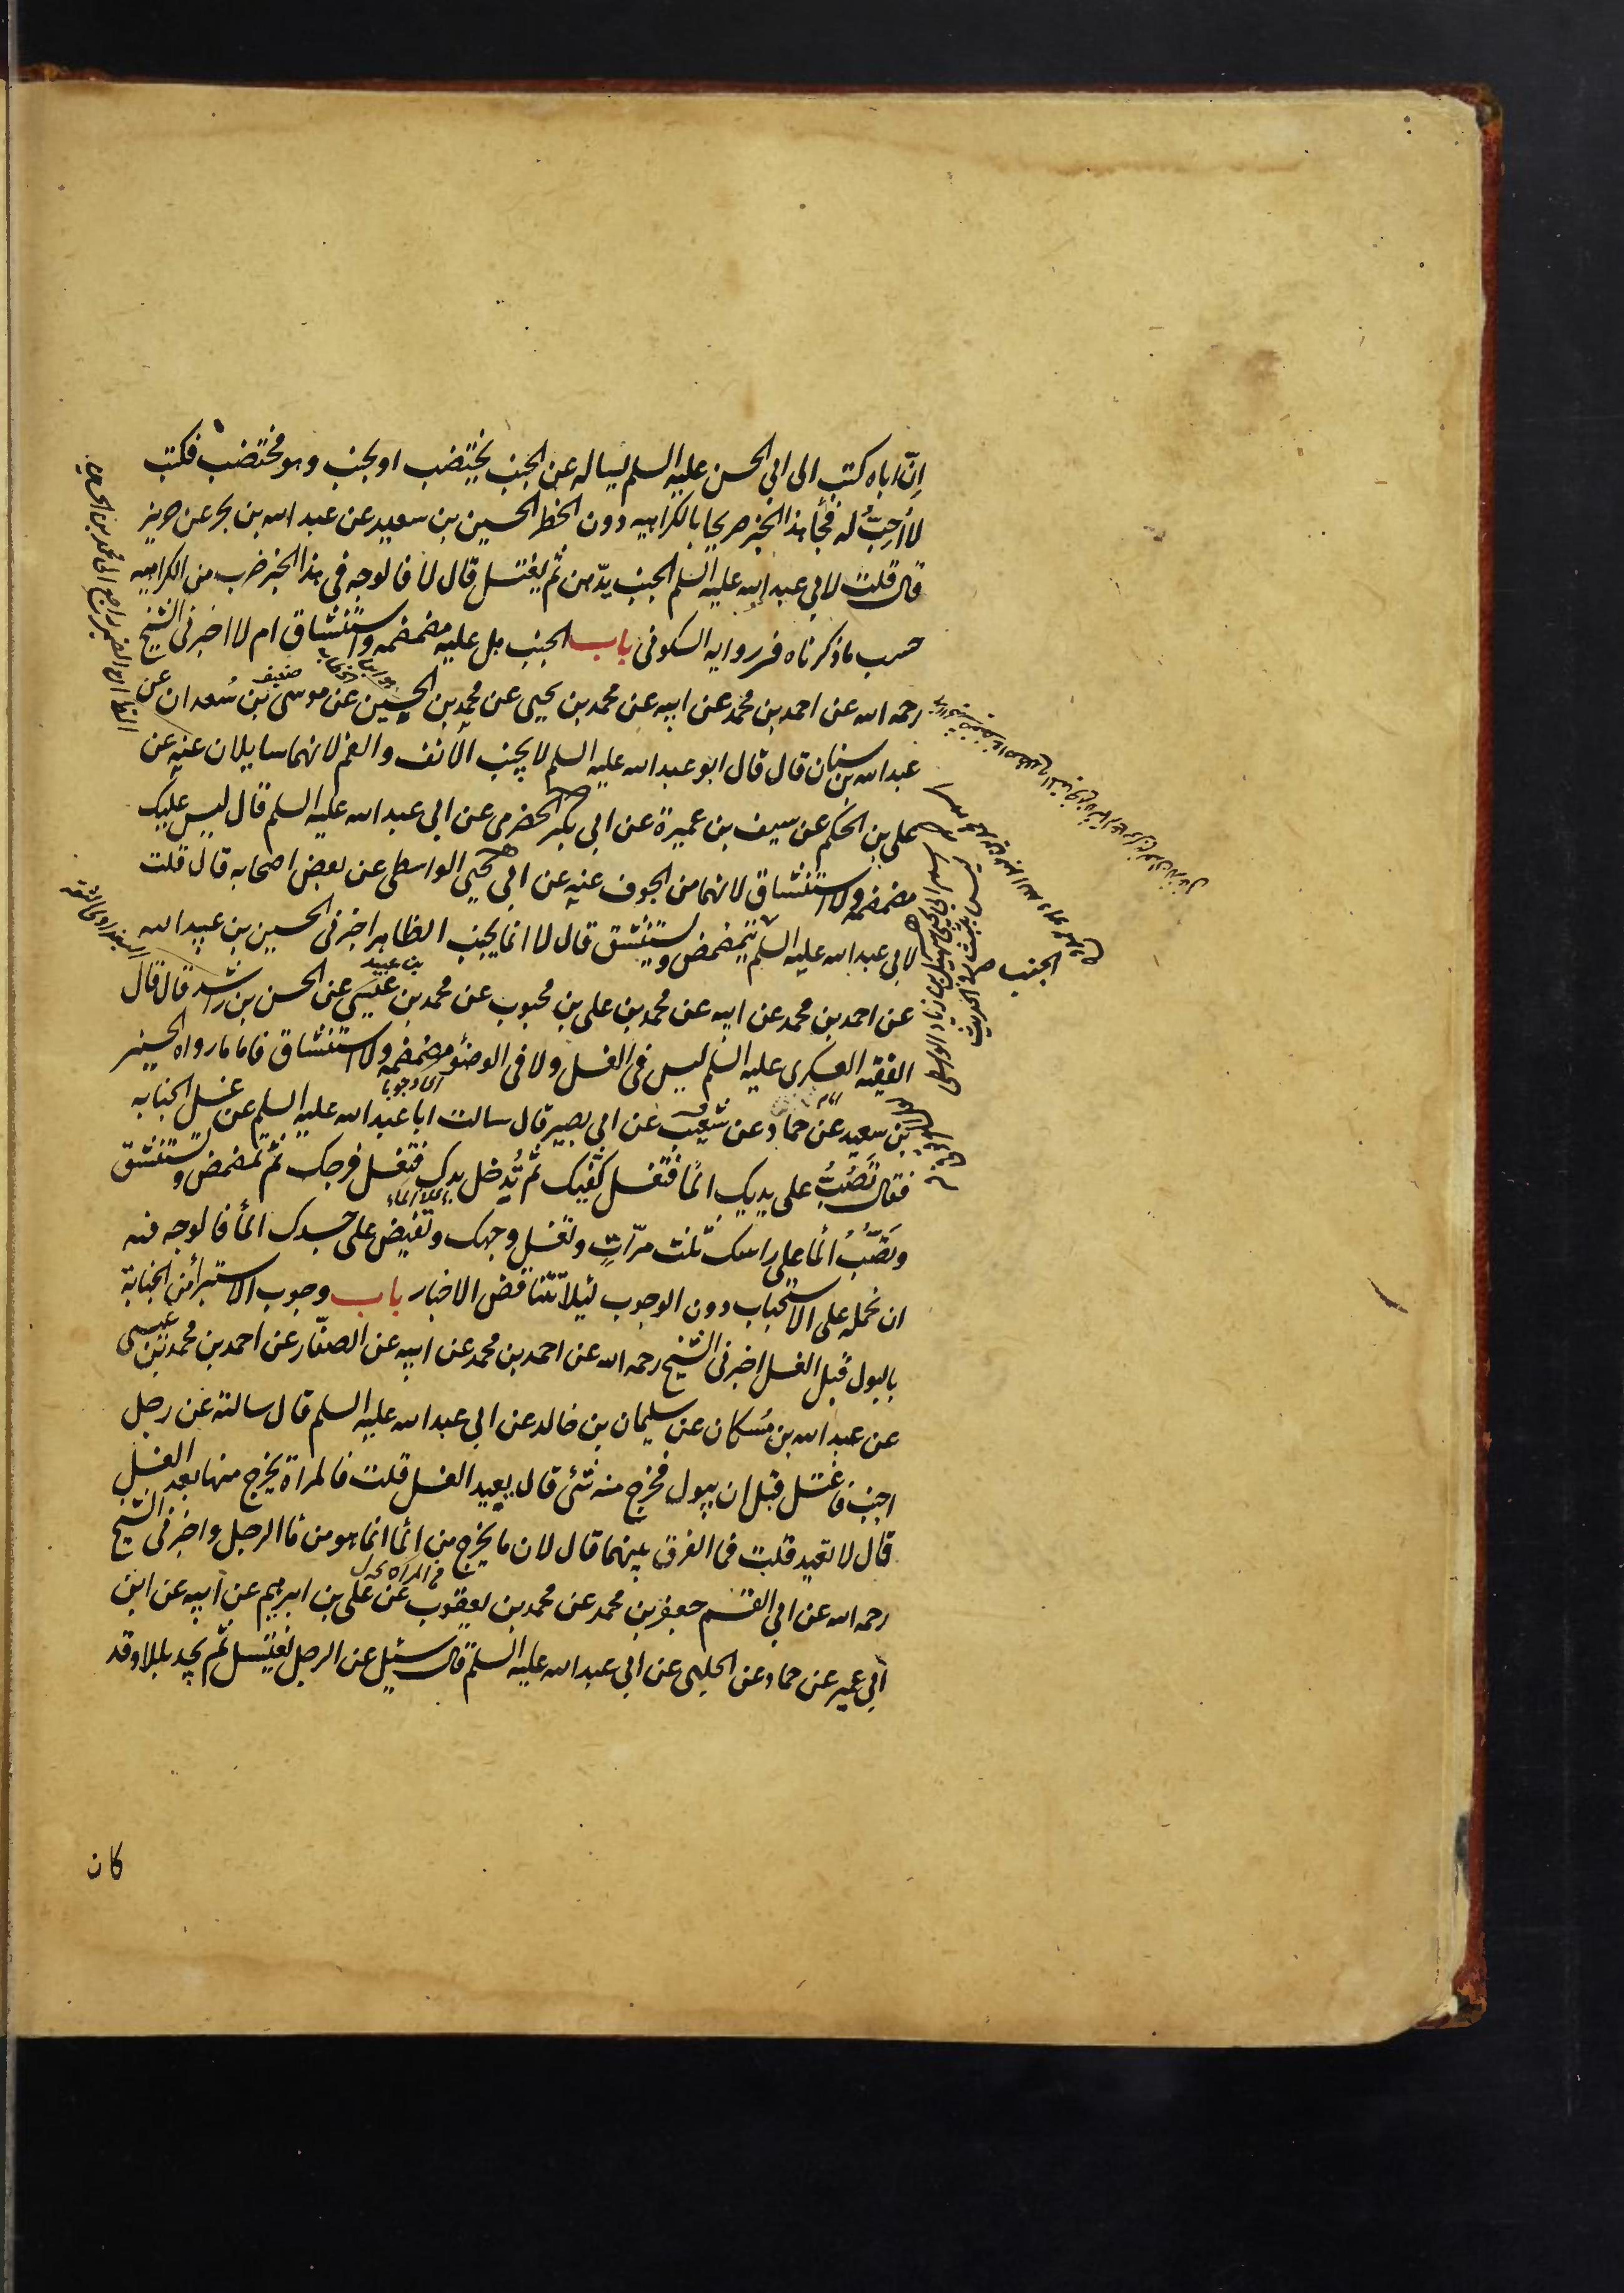 اِنّ اباه كتب الى ابى الحسن عليه السلم يساله عن الجنب يختضب او يجنب وهو مختضب فكتب
لا اُحِبُّ له فجأ هذا الخبر صريحا بالكراهيه دون الحظر الحسين بن سعيد عن عبد الله بن بحر عن حريز
قال قلت لابى عبد الله عليه السلم الجنب يدّهن ثم يغتسل قال لا فالوجه فى هذا الخبر ضرب من الكراهيه
حسب ما ذكرناه فى روايه السكونى باب الجنب هل عليه مضمضه واستنشاق ام لا اخبرنى الشيخ
رحمه الله عن احمد بن محمد عن ابيه عن محمد بن يحيى عن محمد بن الحسين عن موسى بن سُعدان عن
ضعيف
عبد الله بن سنان قال قال ابو عبد الله عليه السلم لا يجنب الانف والفم لانهما سايلان عنه عن
على بن الحكم عن سيف بن عميرة عن ابى بكر الحضرمى عن ابى عبد الله عليه السلم قال ليس عليك
مضمضه ولا استنشاق لانهما من الجوف عنه عن ابى يحيى الواسطى عن بعض اصحابه قال قلت
لابى عبد الله عليه السلم يتمضمض ويستنشق قال لا انما يجنب الظاهر اخبرنى الحسين بن عبيد الله
الجنب صح
عن احمد بن محمد عن ابيه عن محمد بن على بن محبوب عن محمد بن عيسى عن الحسن بن راشد قال قال
بن عبيد
الفقيه العسكرى عليه السلم ليس فى الغسل ولا فى الوضؤ مضمضه ولا استنشاق فاما ما رواه الحسين
اى وجوبا
بن سعيد عن حماد عن شعيب عن ابى بصير قال سالت ابا عبد الله عليه السلم عن غسل الجنابه
فقال تَصُبُّ على يديك المأ فتغسل كفّيك ثم تُدخل يدك فتغسل فرجك ثم تمضمض وتستنشق
وتَصُبُّ المأ على راسك ثلث مرّاتٍ وتغسل وجهك وتفيض على جسدك المأ فالوجه فيه
ان نحمله على الاستحباب دون الوجوب لئلا تتناقض الاخبار باب وجوب الاستبرأ من الجنابة
بالبول قبل الغسل اخبرنى الشيخ رحمه الله عن احمد بن محمد عن ابيه عن الصفّار عن احمد بن محمد بن عيسى
عن عبد الله بن مُسكان عن سليمان بن خالد عن ابى عبد الله عليه السلم قال سالته عن رجل
اجنب فاغتسل قبل ان يبول فخرج منه شئ قال يعيد الغسل قلت فالمراة يخرج منها بعد الغسل
قال لا تعيد قلت فما الفرق بينهما قال لان ما يخرج من المأ انما هو من مأ الرجل واخبرنى الشيخ
رحمه الله عن ابى القسم جعفر بن محمد عن محمد بن يعقوب عن على بن ابرهيم عن ابيه عن ابن
ابى عمير عن حماد عن الحلبى عن ابى عبد الله عليه السلم قال سئل عن الرجل يغتسل ثم يجد بللا وقد
كان
الظ ان الضمير راجع الى محمد بن الحسين
اسم ابى يحيى سهيل بن زياد الواسطى
ليس بثبت فى الحديث